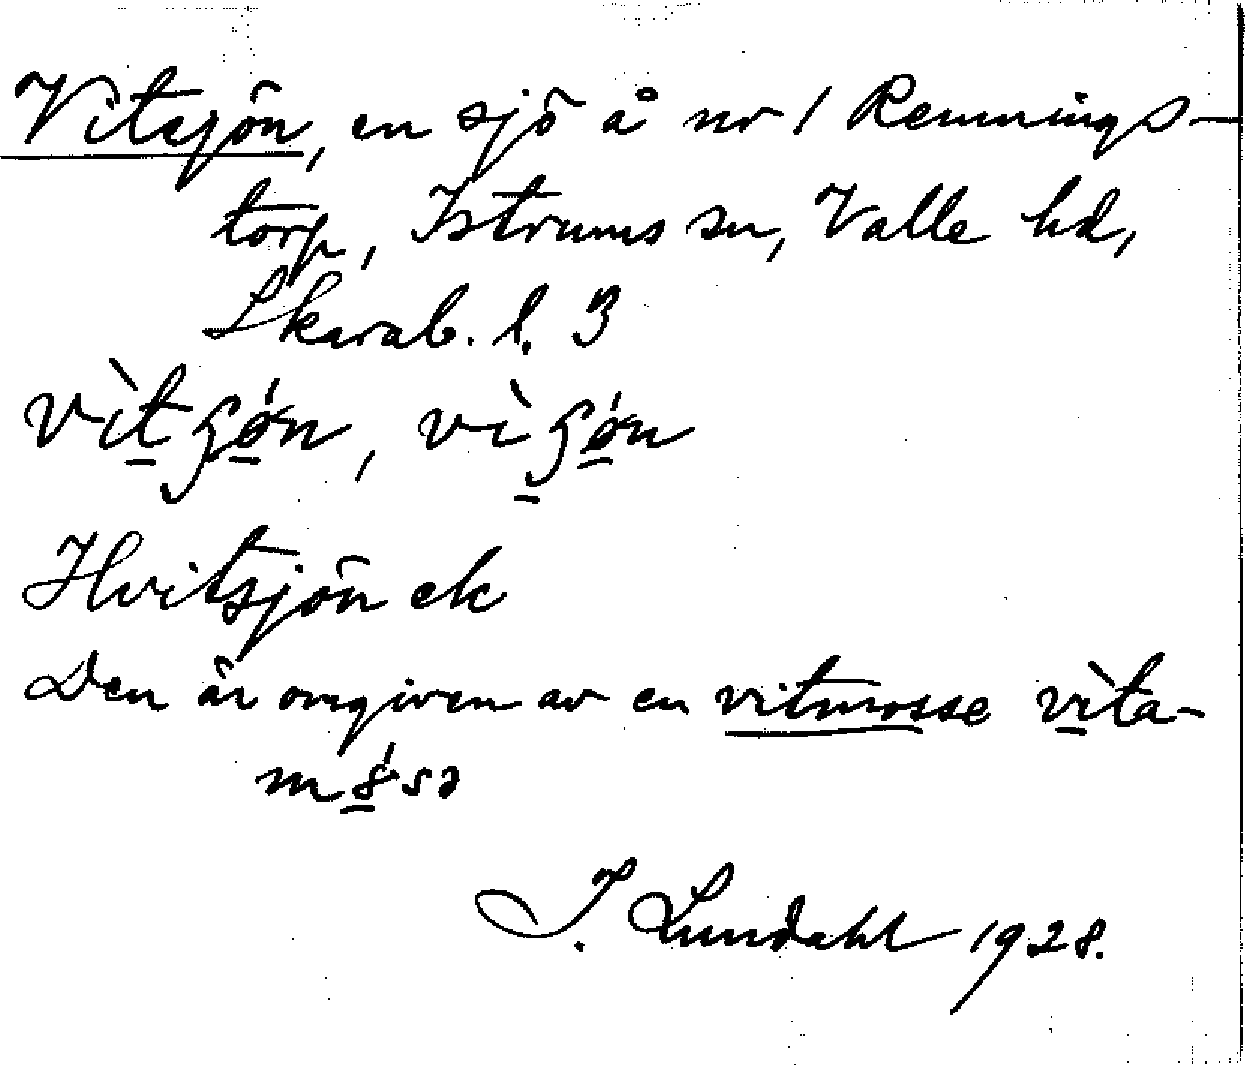 Vitsjön, en sjö å nr 1 Remnings-
torp, Istrums sn, Valle hd,
Skarab. l. 3
vìtʃǿn, vìʃǿn
Hvitsjön ek
Den är omgiven av en vitmosse vìta-
m8́sə
I. Lundahl 1928.